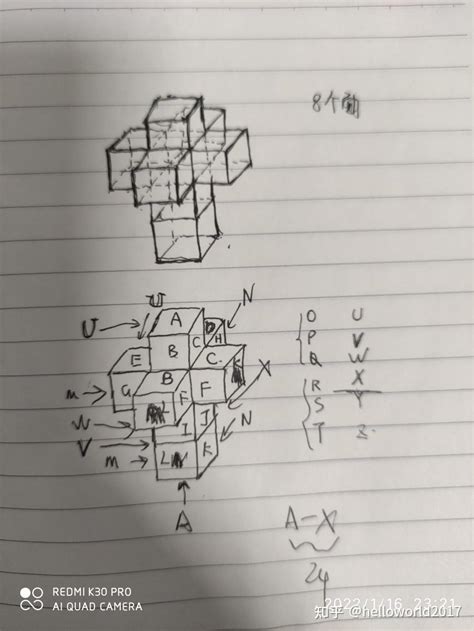 8个面
U
N
U
A
D
C
H
B
E
C
X
B
G
F
F
m
W
I
J
N
V
K
m
L
A
O U
P V
Q W
R X
S Y
T Z
A-X
24
REDMI K30 PRO
AI QUAD CAMERA
2022/1/16 23:21
知乎 @helloworld2017